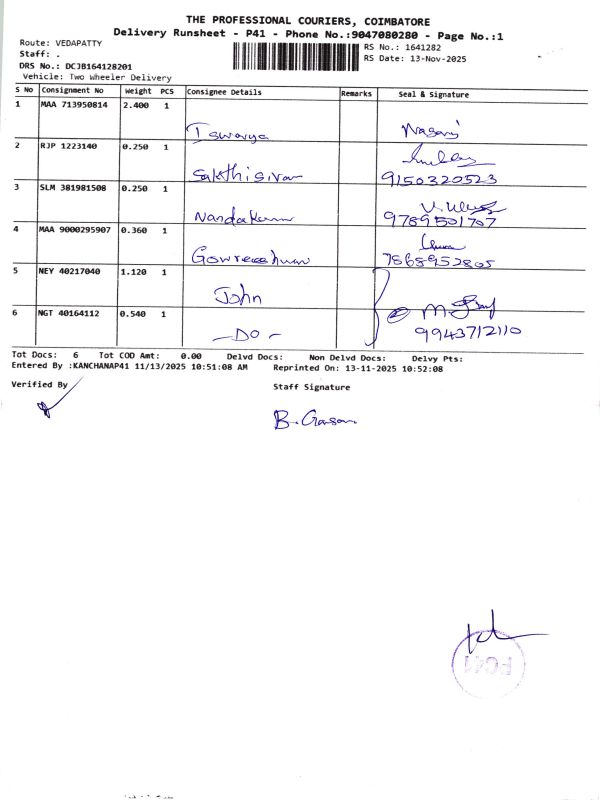 THE PROFESSIONAL COURIERS, COIMBATORE
Delivery Runsheet - P41 - Phone No.:9047080280 - Page No.:1
Route: VEDAPATTY
RS No.: 1641282
Staff: .
RS Date: 13-Nov-2025
DRS No.: DCJB164128201
Vehicle: Two Wheeler Delivery
S No Consignment No Weight PCS Consignee Details Remarks Seal & Signature
1 MAA 713950814 2.400 1
Iswarya
2 RJP 1223140 0.250 1
Sakthisivan 9150320523
3 SLM 381981508 0.250 1
Nandakumar 9789501707
4 MAA 9000295907 0.360 1
7868952805
5 NEY 40217040 1.120 1
John
6 NGT 40164112 0.540 1
-DO- 9943712110
Tot Docs: 6 Tot COD Amt: 0.00 Delvd Docs: Non Delvd Docs: Delvy Pts:
Entered By :KANCHANAP41 11/13/2025 10:51:08 AM Reprinted On: 13-11-2025 10:52:08
Verified By Staff Signature
PC41